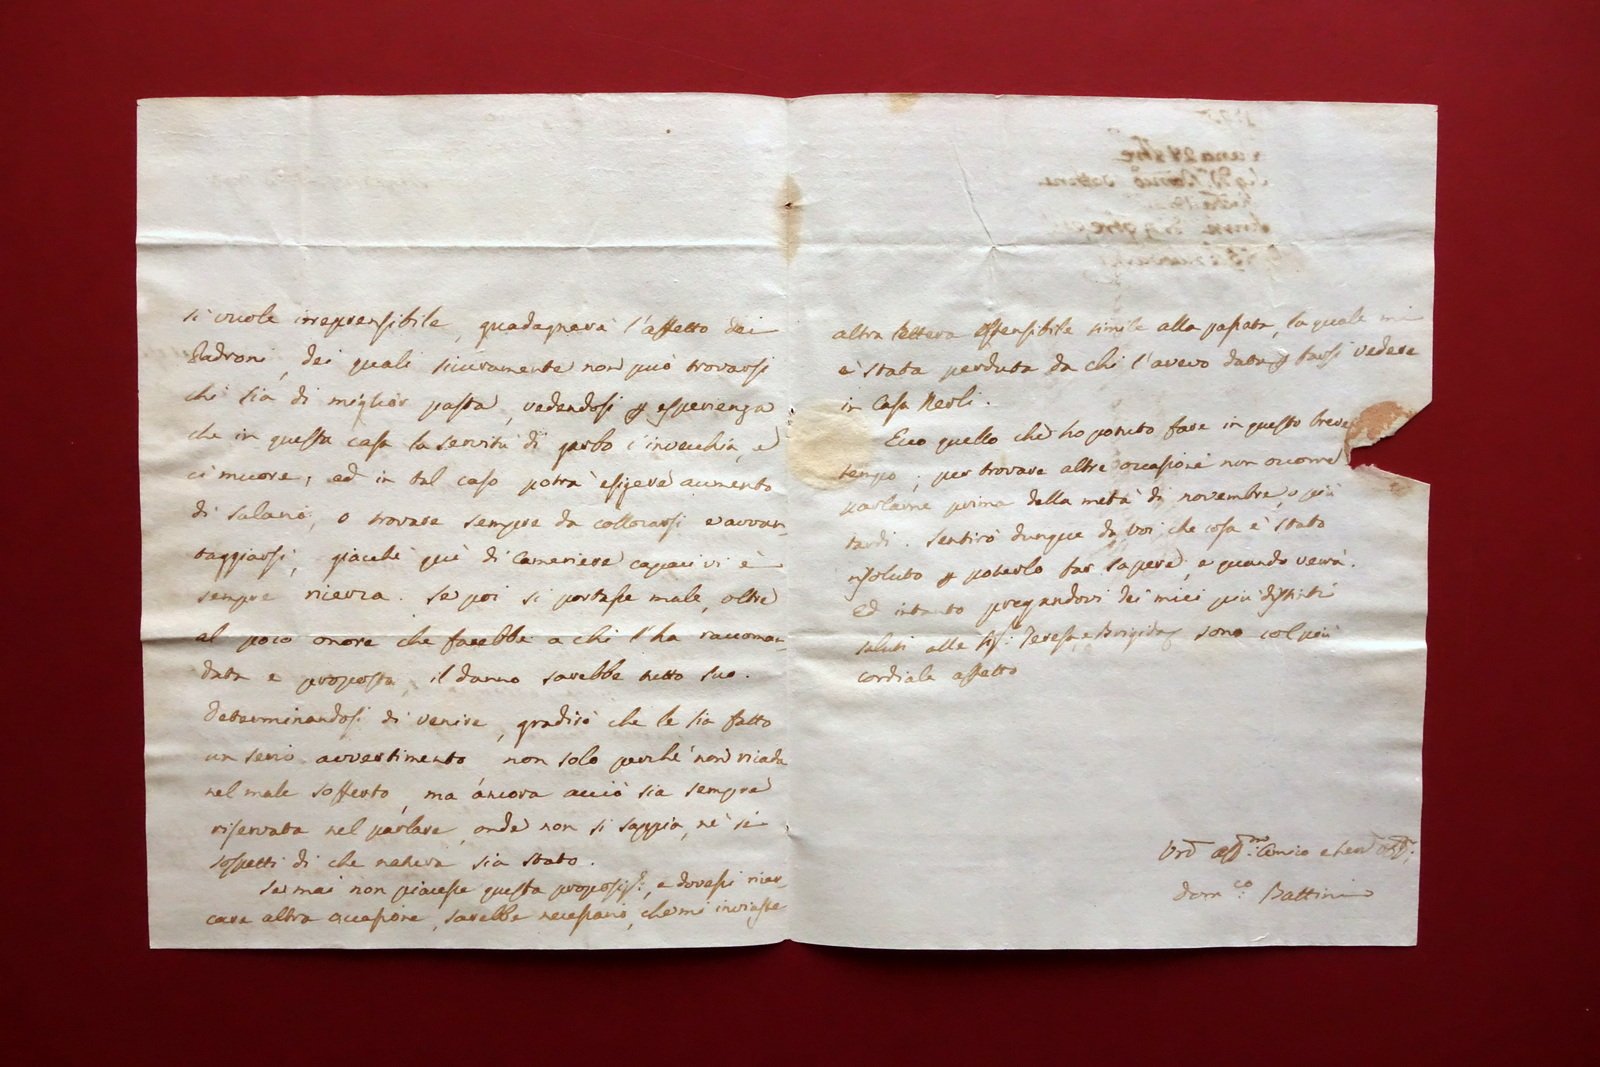 si vuole irreprensibile, guadagnerà l'affetto dei
Padroni, dei quali sicuramente non può trovarsi
chi sia di miglior pasta, vedendosi p esperienza
che in questa casa la servitù di garbo c'invecchia, e
ci muore; ed in tal caso potrà esigere aumento
di salario, o trovare sempre da collocarsi e avvan-
taggiarsi, giacchè quì di Cameriere capaci vi è
sempre ricerca. Se poi si portasse male, oltre
al poco onore che farebbe a chi l'ha raccoman-
data e proposta, il danno sarebbe tutto suo.
Determinandosi di venire, gradirò che le sia fatto
un serio avvertimento, non solo perchè non ricada
nel male sofferto, ma ancora acciò sia sempre
riservata nel parlare, onde non si sappia, nè si
sospetti di che natura sia stato.
Se mai non piacesse questa proposiz:, e dovessi ricer-
care altra occasione, sarebbe necessario, che mi inviaste
altra lettera ostensibile simile alla passata, la quale mi
è stata perduta da chi l'avevo data p farsi vedere
in Casa Nerli.
Ecco quello che ho potuto fare in questo breve
tempo; per trovare altre occasioni non occorre
parlarne prima della metà di novembre, o più
tardi. Sentirò dunque da voi che cosa è stato
risoluto p poterlo far sapere, e quando verrà.
Ed intanto pregandovi dei miei più distinti
saluti alle Sig: Teresa, e Brigida, sono col più
cordiale affetto
Vro aff:mo Amico
Dom:co Battini